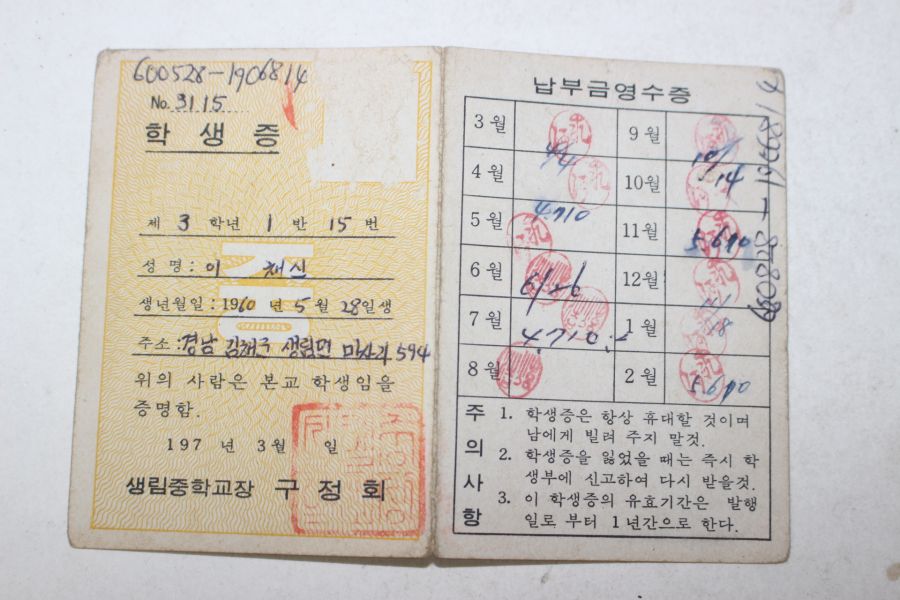 600528-1906814
No. 3115
학생증
제 3 학년 1 반 15 번
성명: 이 채신
생년월일: 1960 년 5 월 28일생
주소: 경남 김해군 생림면 마사리 594
위의 사람은 본교 학생임을
증명함.
197 년 3월 일
생림중학교장 구정회
납부금영수증
3월
9월
4월
10월
10/14
5월
4710
11월
5610
6월
12월
7월
4710
1월
8월
2월
5610
주의사항
1. 학생증은 항상 휴대할 것이며
남에게 빌려 주지 말것.
2. 학생증을 잃었을 때는 즉시 학
생부에 신고하여 다시 받을것.
3. 이 학생증의 유효기간은 발행
일로 부터 1년간으로 한다.
600528-1906814